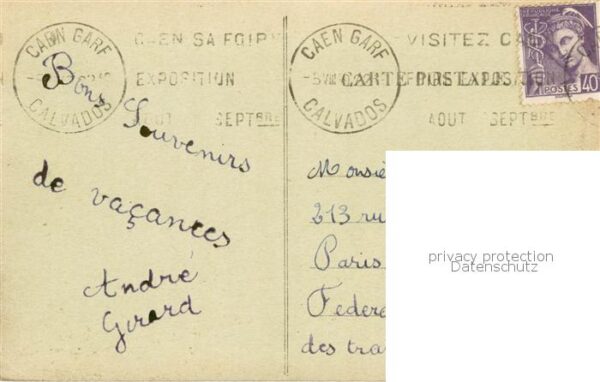 CAEN GARE
CALVADOS
CAEN SA FOIRE
EXPOSITION
AOUT SEPTBRE
CAEN GARE
CALVADOS
VISITEZ CA
EXPOSITION
AOUT SEPTBRE
CARTE POSTALE
POSTES 40
Bons
Souvenirs
de vaçances
André
Girard
Monsie
213 ru
Paris
Federa
des tra
privacy protection
Datenschutz